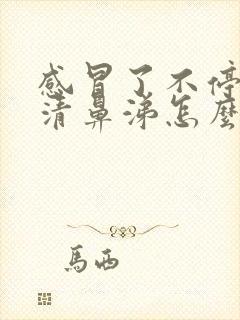 感冒了不停
清鼻涕怎麼
馬西